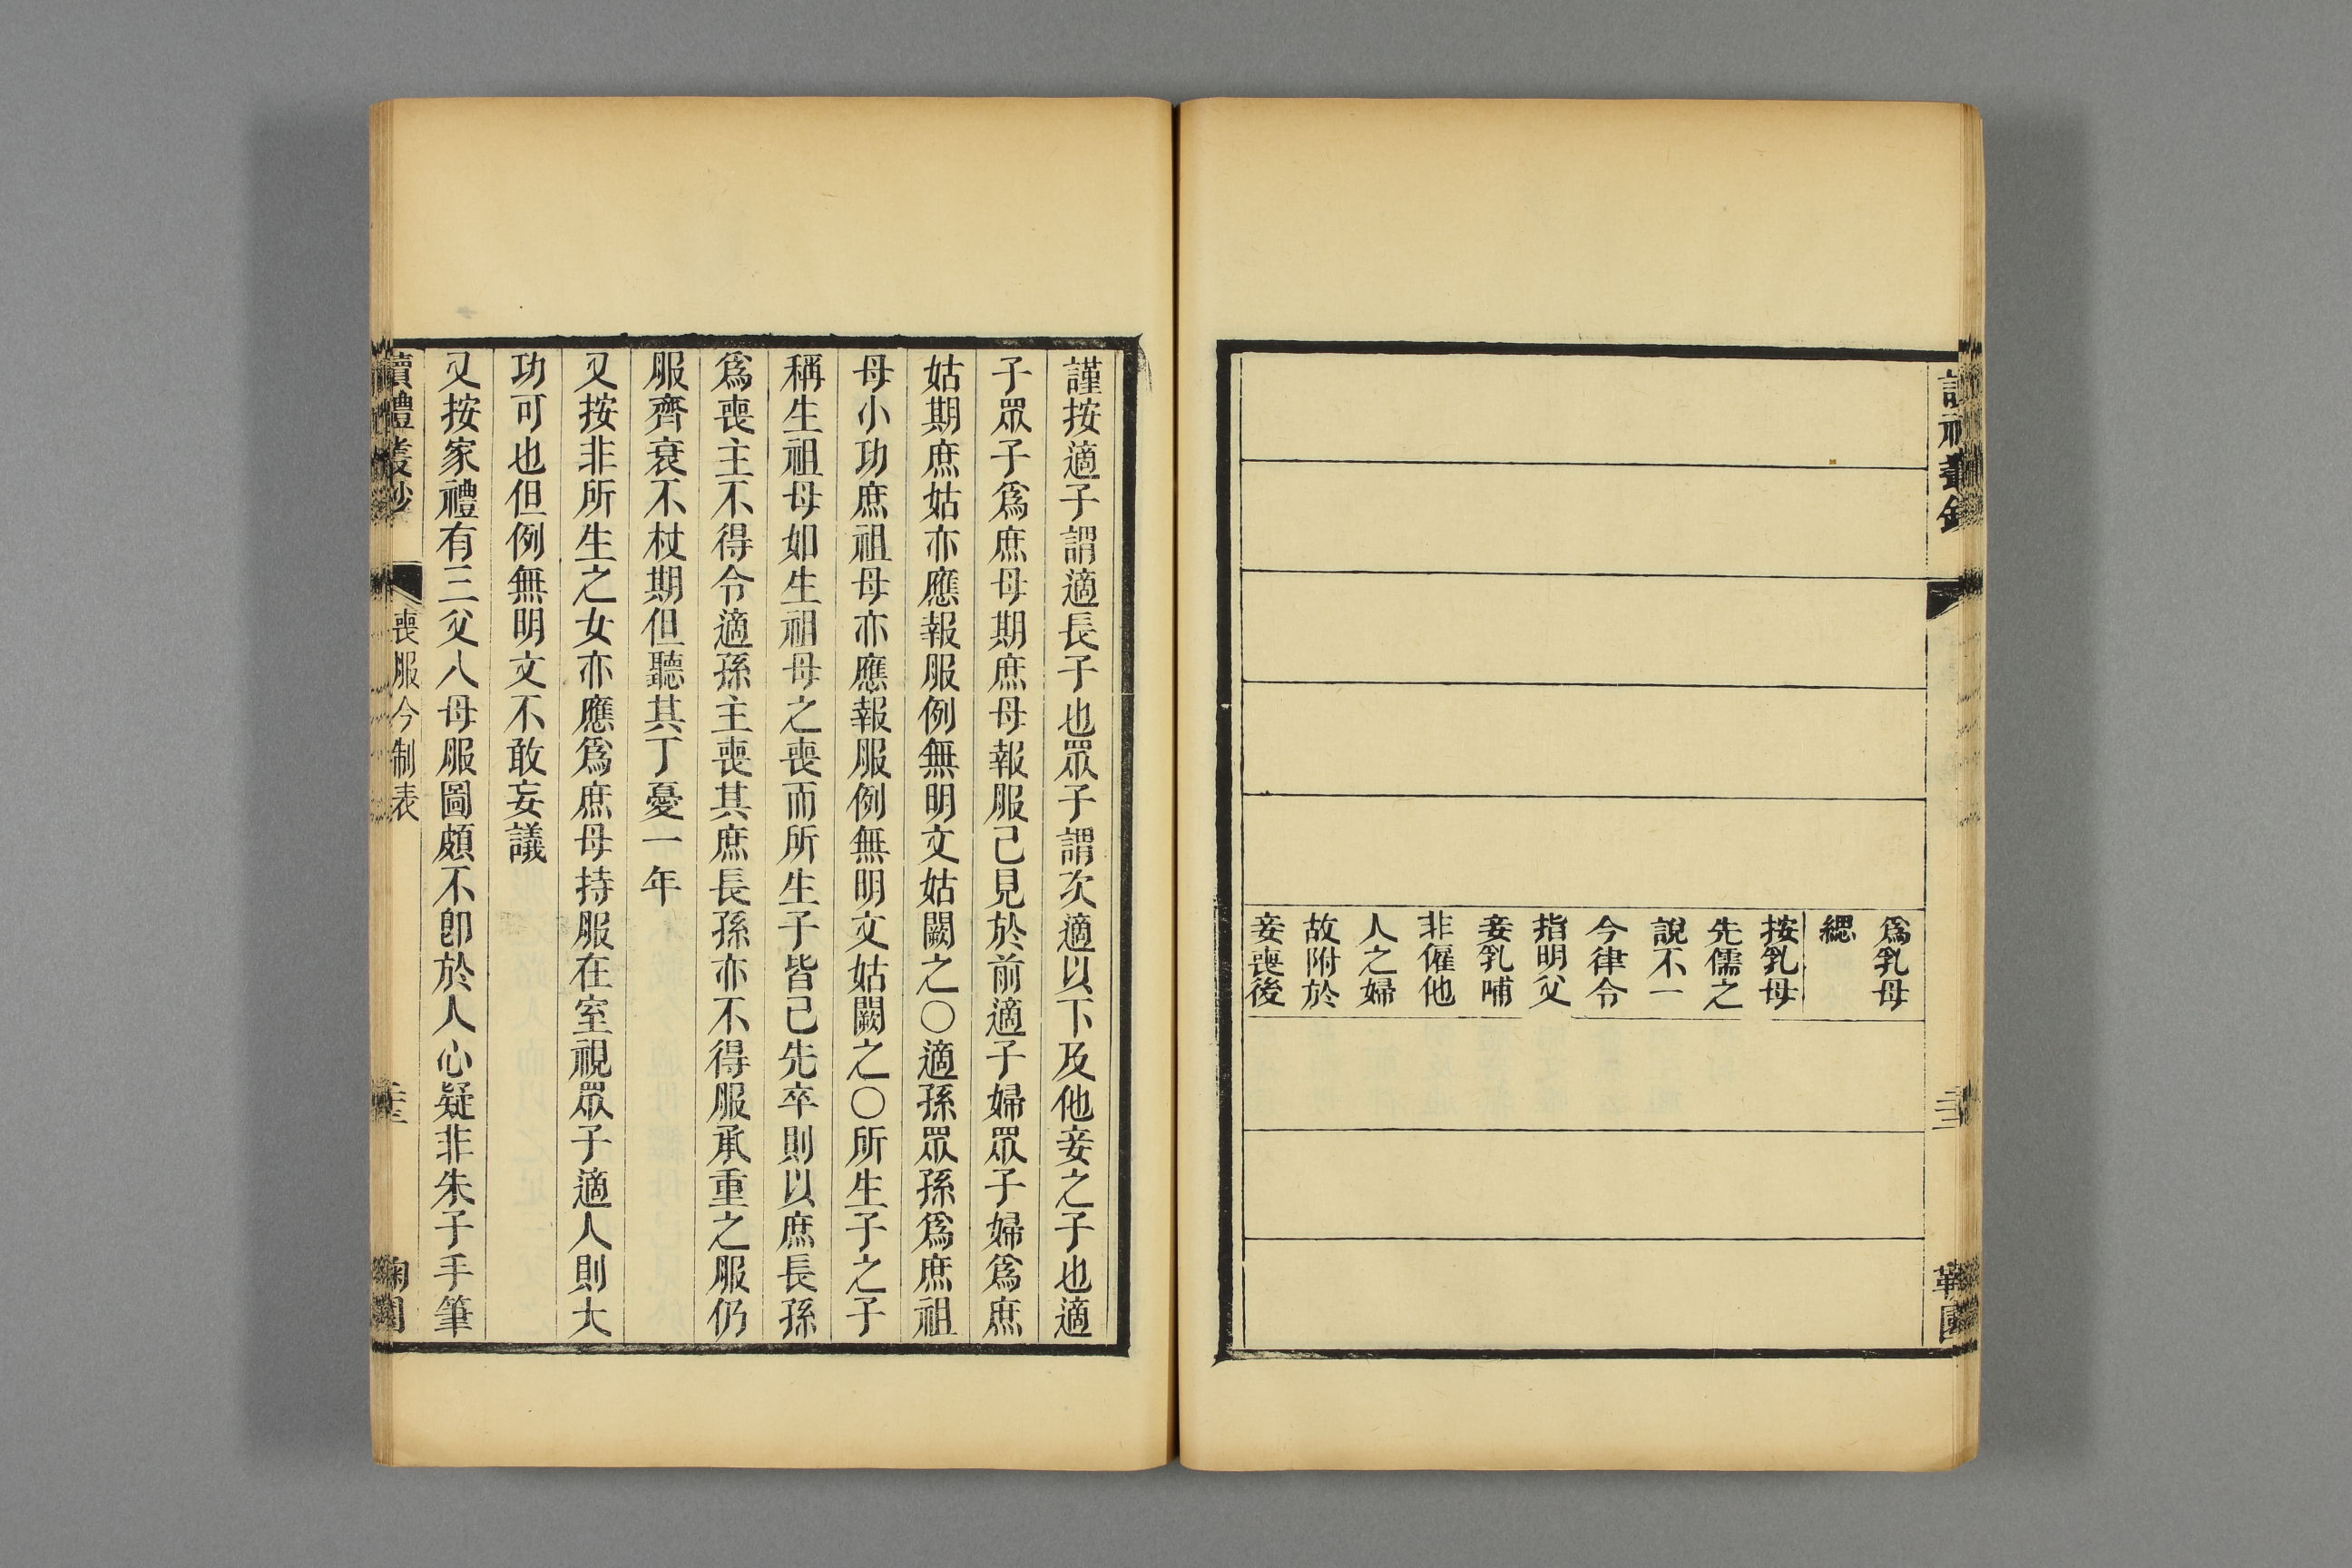 爲乳母
緦
按乳母
先儒之
說不一
今律令
指明父
妾乳哺
非僱他
人之婦
故附於
妾喪後
謹按適子謂適長子也眾子謂次適以下及他妾之子也適
子眾子爲庶母期庶母報服己見於前適子婦眾子婦爲庶
姑期庶姑亦應報服例無明文姑闕之〇適孫眾孫爲庶祖
母小功庶祖母亦應報服例無明文姑闕之〇所生子之子
稱生祖母如生祖母之喪而所生子皆己先卒則以庶長孫
爲喪主不得令適孫主喪其庶長孫亦不得服承重之服仍
服齊衰不杖期但聽其丁憂一年
又按非所生之女亦應爲庶母持服在室視眾子適人則大
功可也但例無明文不敢妄議
又按家禮有三父八母服圖頗不卽於人心疑非朱子手筆
讀禮叢鈔
喪服今制表